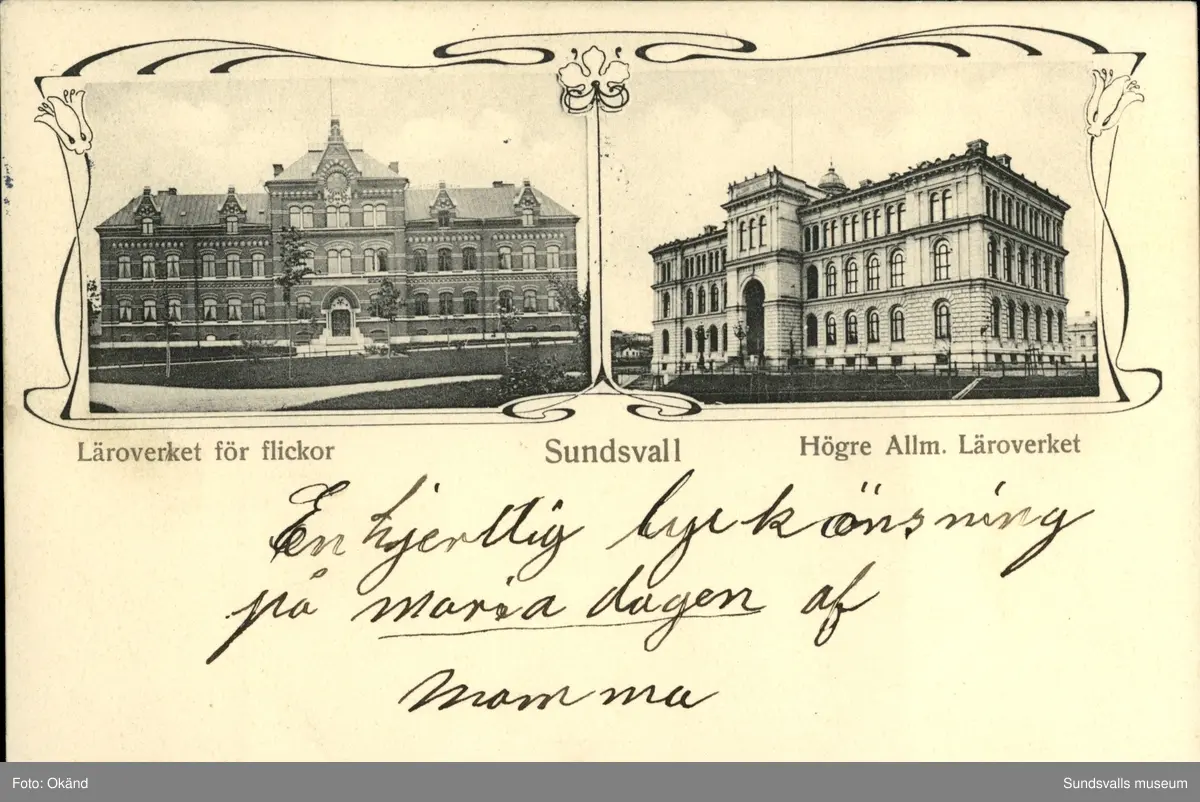 Läroverket för flickor
Sundsvall
Högre Allm. Läroverket
En hjertlig lyckönsning
på maria dagen af
Mamma
Foto: Okänd
Sundsvalls museum